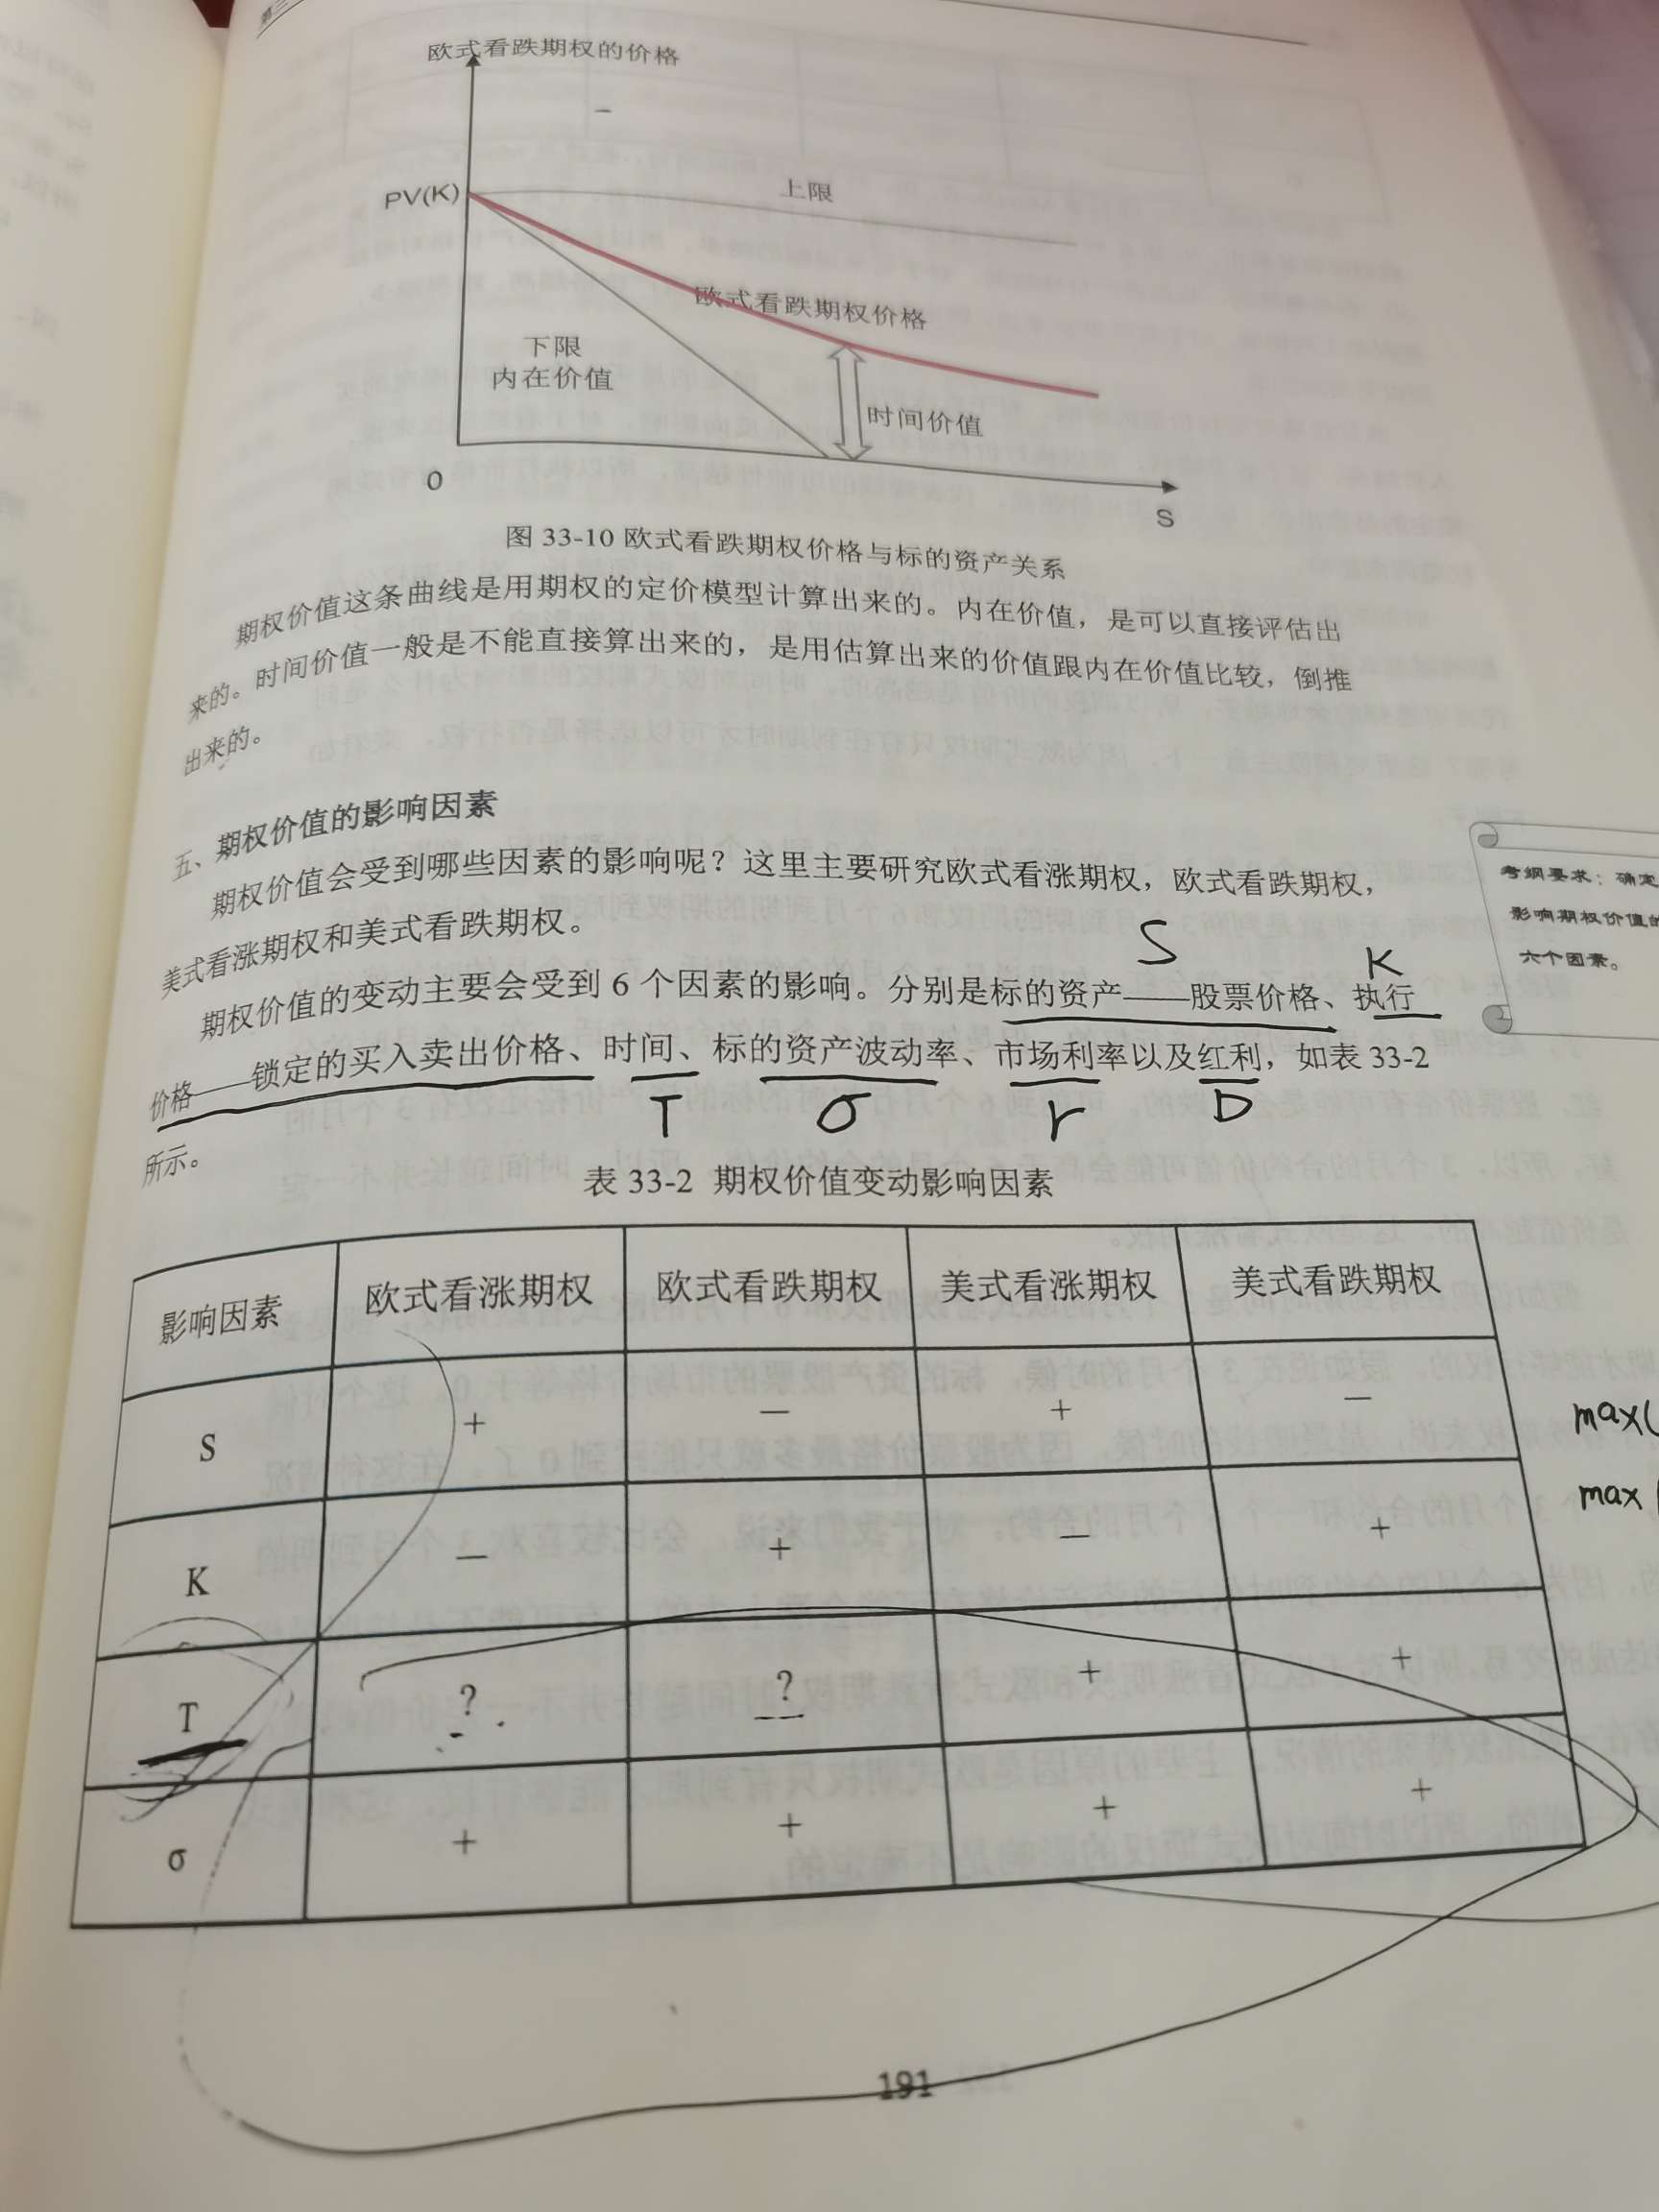 欧式看跌期权的价格
PV(K)
上限
欧式看跌期权价格
下限
内在价值
时间价值
0
S
图 33-10 欧式看跌期权价格与标的资产关系
期权价值这条曲线是用期权的定价模型计算出来的。内在价值，是可以直接评估出
来的。时间价值一般是不能直接算出来的，是用估算出来的价值跟内在价值比较，倒推
出来的。
五、期权价值的影响因素
期权价值会受到哪些因素的影响呢？这里主要研究欧式看涨期权，欧式看跌期权，
美式看涨期权和美式看跌期权。
考纲要求：确定
影响期权价值的
六个因素。
S K
期权价值的变动主要会受到 6 个因素的影响。分别是标的资产——股票价格、执行
价格——锁定的买入卖出价格、时间、标的资产波动率、市场利率以及红利，如表 33-2
T σ r D
所示。
表 33-2 期权价值变动影响因素
影响因素 欧式看涨期权 欧式看跌期权 美式看涨期权 美式看跌期权
S + — + —
K — + — +
T ? ? + +
σ + + + +
max(
max
191